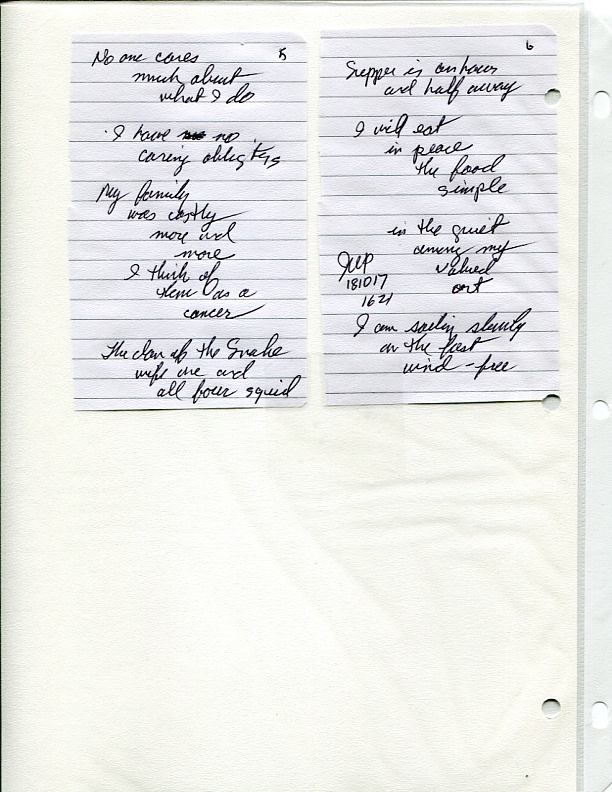 5
No one cares
much about
what I do
I have no
caring obligations
My family
was costly
more and
more
I think of
them as a
cancer
The clan of the Snake
wife one and
all four squid
6
Supper is an hour
and half away
I will eat
in peace
the food
simple
in the quiet
among my
valued
art
181017
1621
I am sailing slowly
on the last
wind-free